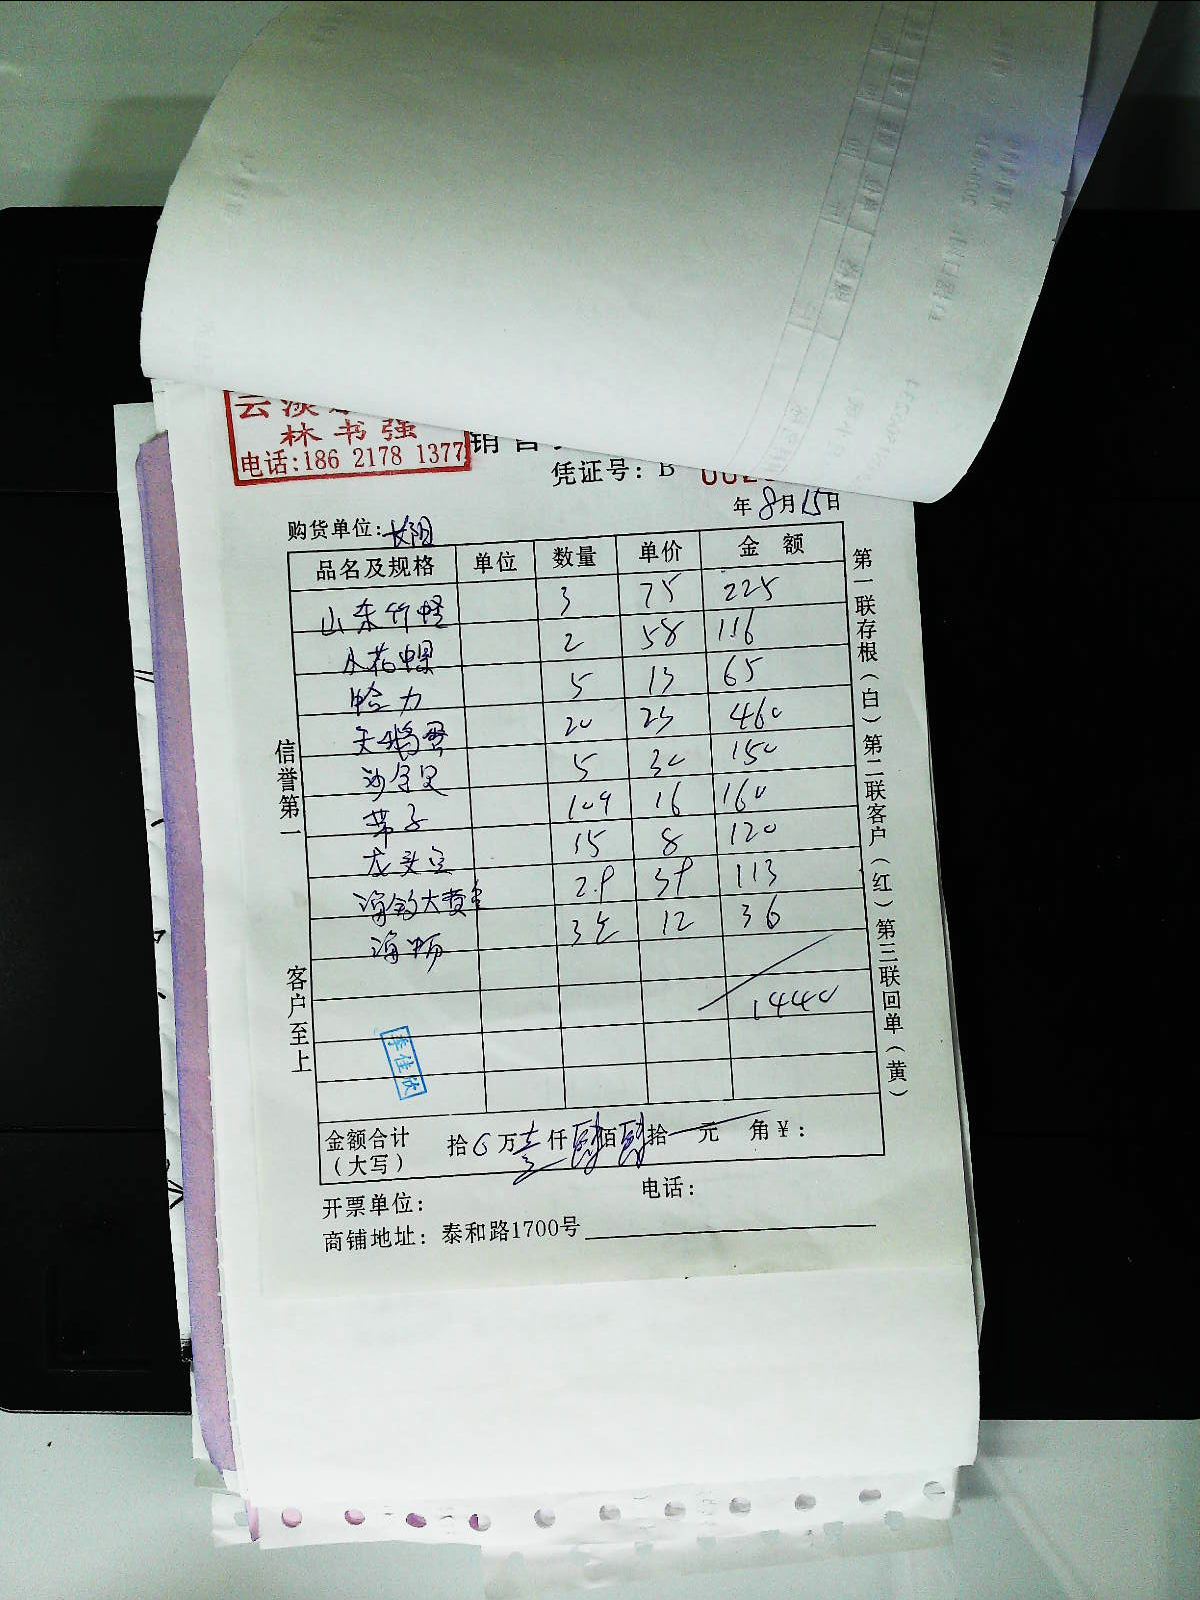 云淡
林书强
电话:186 2178 1377
销售
凭证号: B 002
年 8月15日
购货单位: 长阳
品名及规格 单位 数量 单价 金额
山东竹蛏 3 75 225
花螺 2 58 116
蛤力 5 13 65
天鹅蛋 20 23 460
沙 5 30 150
带子 10个 16 160
龙头 15 8 120
海 大黄鱼 2.9 39 113
海肠 3 12 36
1440
李佳欣
金额合计 拾 万壹仟肆佰肆拾一元 角¥:
(大写)
开票单位: 电话:
商铺地址: 泰和路1700号
信誉第一
客户至上
第一联存根(白)第二联客户(红)第三联回单(黄)